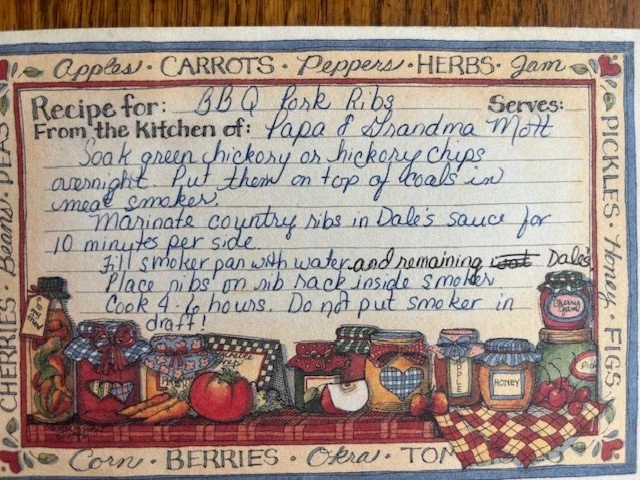 Apples · CARROTS · Peppers · HERBS · Jam
Recipe for: BBQ Pork Ribs Serves:
From the Kitchen of: Papa & Grandma Mott
Soak green hickory or hickory chips
overnight. Put them on top of coals in
meat smoker.
Marinate country ribs in Dale's sauce for
10 minutes per side.
Fill smoker pan with water and remaining Dale's
Place ribs on rib rack inside smoker
Cook 4-6 hours. Do not put smoker in
draft!
CHERRIES · Beans · PEAS
PICKLES · Honey · FIGS
Cherry
HONEY
Corn · BERRIES · Okra ·